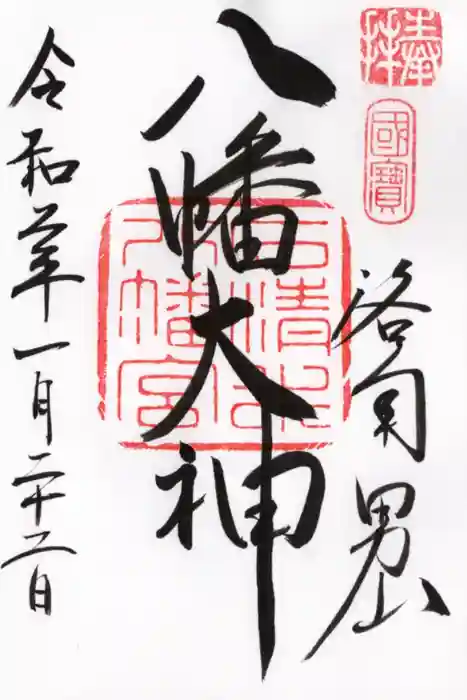 奉拝
國寶
洛南男山
八幡大神
石清水
八幡宮
令和 年一月二十二日